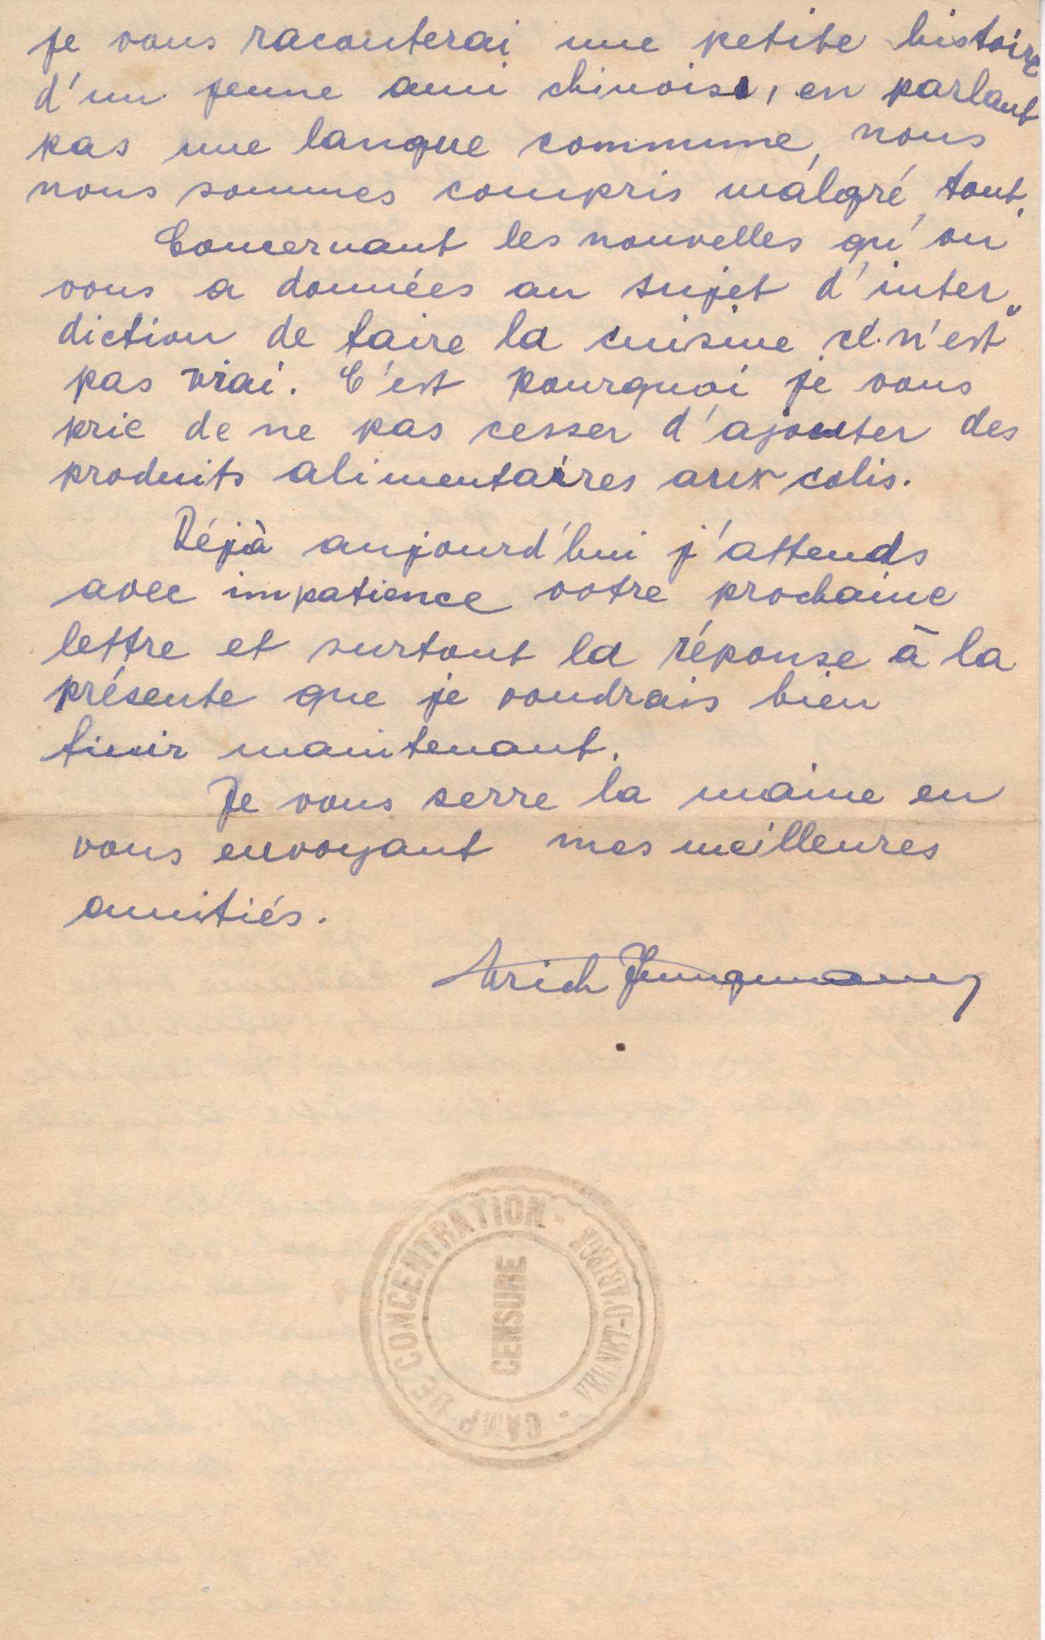 je vous raconterai une petite histoire
d'un jeune ami chinois, en parlant
pas une langue commune, nous
nous sommes compris malgré tout.
Concernant les nouvelles qu'on
vous a données au sujet d'inter„
diction de faire la cuisine cl. n'est
pas vrai. C'est pourquoi je vous
prie de ne pas cesser d'ajouter des
produits alimentaires aux colis.
Déjà aujourd'hui j'attends
avec impatience votre prochaine
lettre et surtout la réponse à la
présente que je voudrais bien
finir maintenant.
Je vous serre la maine en
vous envoyant mes meilleures
amitiés.
Erich Jungmann
CAMP DE CONCENTRATION - VERNET-D'ARIÈGE -
CENSURE